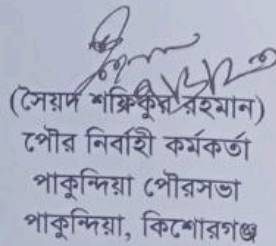 (সৈয়দ শফিকুর রহমান)
পৌর নির্বাহী কর্মকর্তা
পাকুন্দিয়া পৌরসভা
পাকুন্দিয়া, কিশোরগঞ্জ